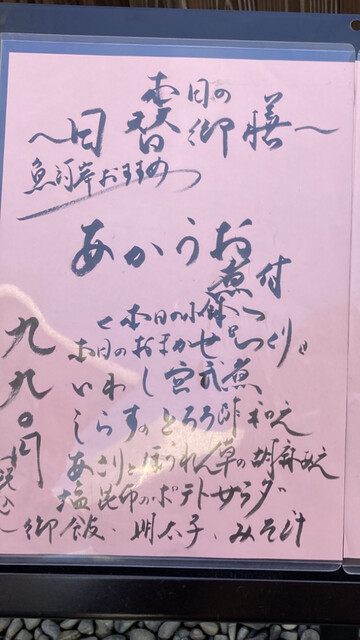 本日の
〜日替御膳〜
魚河岸おすすめ
あかうお
煮付
く本日の小鉢つ
本日のおまかせ
いわし 煮
しらすのとろろ酢和え
あさりとほうれん草の胡麻あえ
塩昆布のポテトサラダ
御飯、明太子、みそ汁
九九〇円